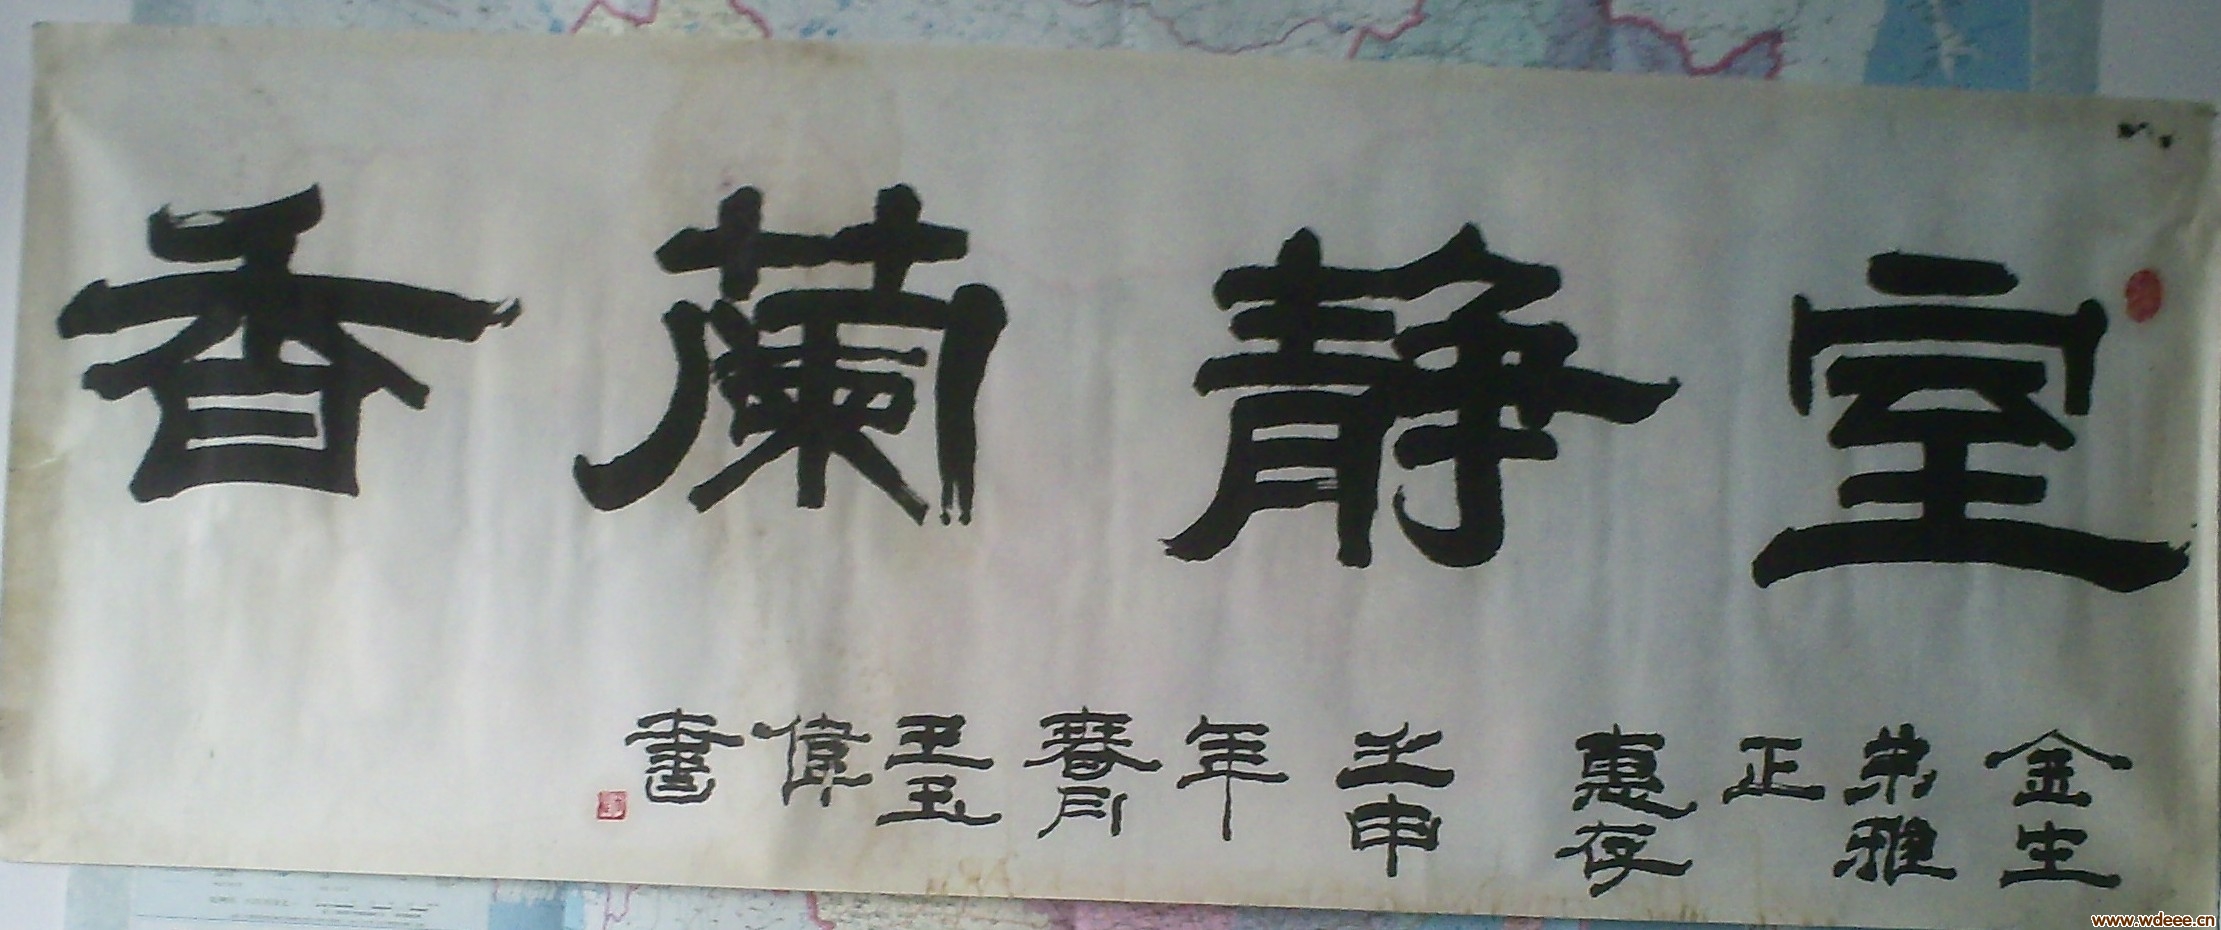 室靜蘭香
金生
弟雅
正
惠存
壬申
年
春月
玉
偉
書
www.wdeee.cn